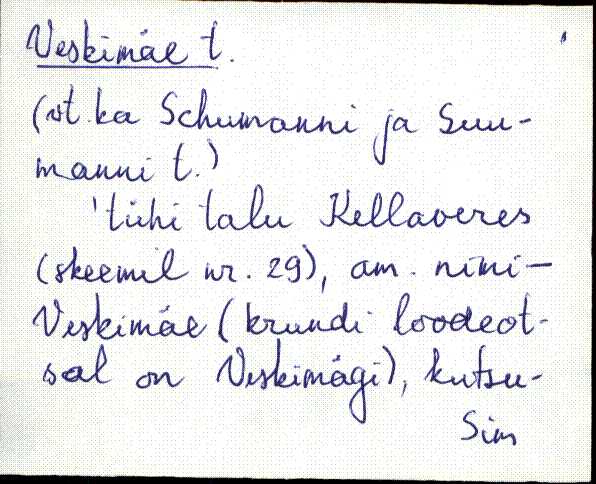 Veskimäe t.
(vt. ka Schumanni ja Suu-
manni t.)
'tühi talu Kellaveres
(skeemil nr. 29), am. nimi –
Veskimäe (krundi loodeot-
sal on Veskimägi), kutsu-
Sim